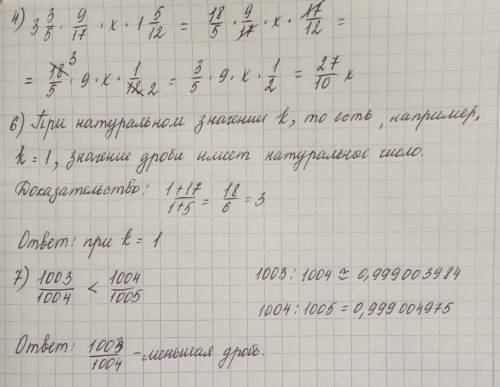 4) 3 3/5 · 9/17 · x · 1 5/12 = 18/5 · 9/17 · x · 17/12 =
= 18/5 3 · 9 · x · 1/12 2 = 3/5 · 9 · x · 1/2 = 27/10 x
6) При натуральном значении k, то есть, например,
k = 1, значение дроби имеет натуральное число.
Доказательство: 1+17/1+5 = 18/6 = 3
Ответ: при k = 1
7) 1003/1004 < 1004/1005 1003 : 1004 ≅ 0,999003984
1004 : 1005 = 0,999004975
Ответ: 1003/1004 - меньшая дробь.